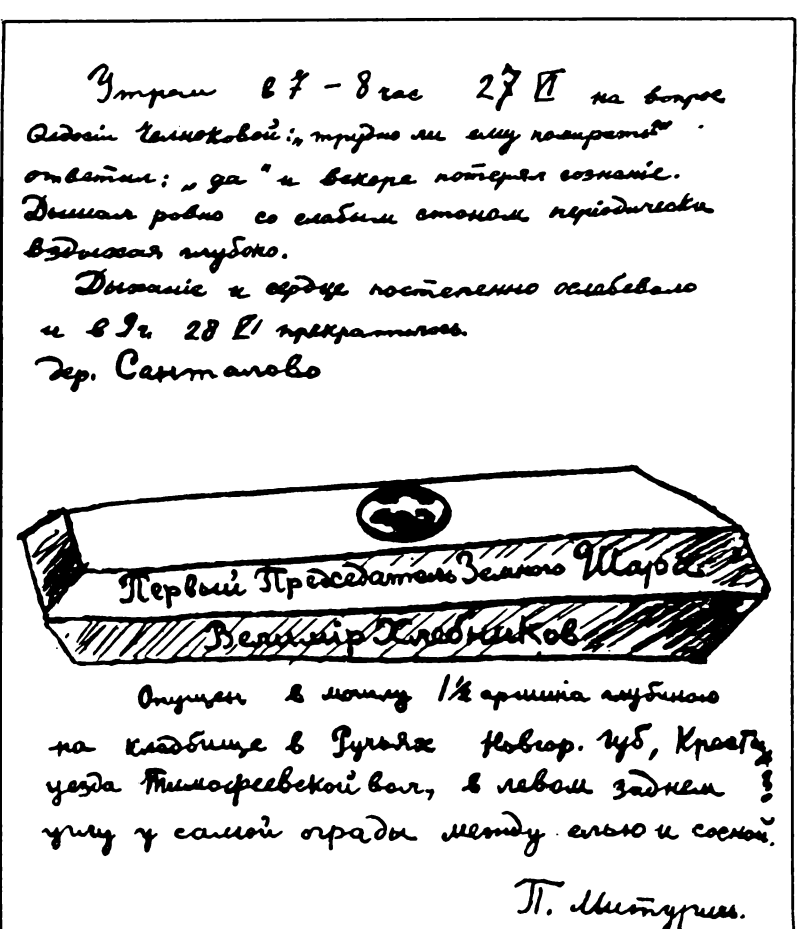 Утром в 7 – 8 час 27 VI на вопрос
Федосiи Челноковой: „трудно ли ему помирать"
ответил: „да" и вскоре потерял сознанiе.
Дышал ровно со слабым стоном перiодически
вздыхая глубоко.
Дыханiе и сердце постепенно ослабевало
и в 9 ч. 28 VI прекратилось.
дер. Санталово
Первый Председатель Земного Шара
Велимiр Хлебников
Опущен в могилу 1½ аршина глубиною
на кладбище в Ручьях Новгор. губ, Крестц.
уезда Тимофеевской вол., в левом заднем
углу у самой ограды между елью и сосной.
П. Митуричъ.